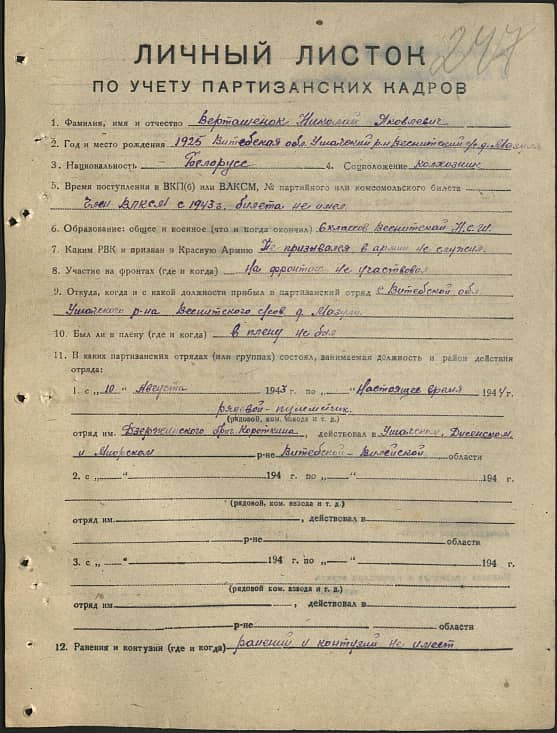 247
ЛИЧНЫЙ ЛИСТОК
ПО УЧЕТУ ПАРТИЗАНСКИХ КАДРОВ
1. Фамилия, имя и отчество Верташенок Николай Яковлевич
2. Год и место рождения 1925 Витебская обл. Ушачский р-н Веснитский с/с д. Мазули
3. Национальность Белорусс 4. Соцположение Колхозник
5. Время поступления в ВКП(б) или ВЛКСМ, № партийного или комсомольского билета
Член ВЛКСМ с 1943 г. билета не имел.
6. Образование: общее и военное (что и когда окончил) 6 классов Веснитской Н.С.Ш.
7. Каким РВК и призван в Красную Армию Не призывался в армии не служил.
8. Участие на фронтах (где и когда) На фронтах не участвовал
9. Откуда, когда и с какой должности прибыл в партизанский отряд с Витебской обл.
Ушачского р-на Веснитского с/сов д. Мазули
10. Был ли в плену (где и когда) В плену не был
11. В каких партизанских отрядах (или группах) состоял, занимаемая должность и район действия
отряда:
1. с „10“ Августа 1943 г. по „ “ Настоящее время 1944 г.
рядовой-пулеметчик.
(рядовой, ком. взвода и т. д.)
отряд им. Дзержинского бриг. Короткина, действовал в Ушачском, Дисенском,
и Миорском р-не Витебской-Вилейской области
2. с „ “ 194 г. по „ “ 194 г.
(рядовой, ком. взвода и т. д.)
отряд им. , действовал в
р-не области
3. с „ “ 194 г. по „ “ 194 г.
(рядовой, ком. взвода и т. д.)
отряд им , действовал в
р-не области
12. Ранения и контузии (где и когда) ранений и контузий не имеет